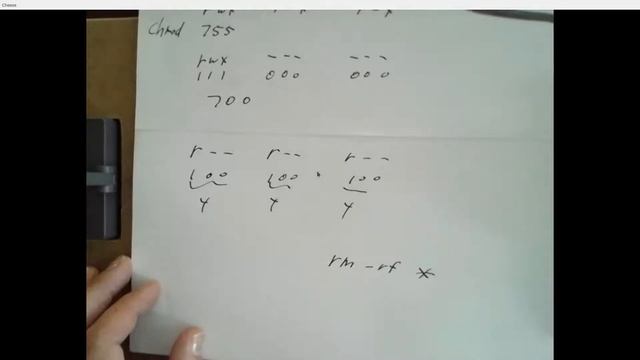 Cheese
rwx r-x r-x
chmod 755
rwx --- ---
111 000 000
700
r-- r-- r--
100 100 100
4 4 4
rm -rf *